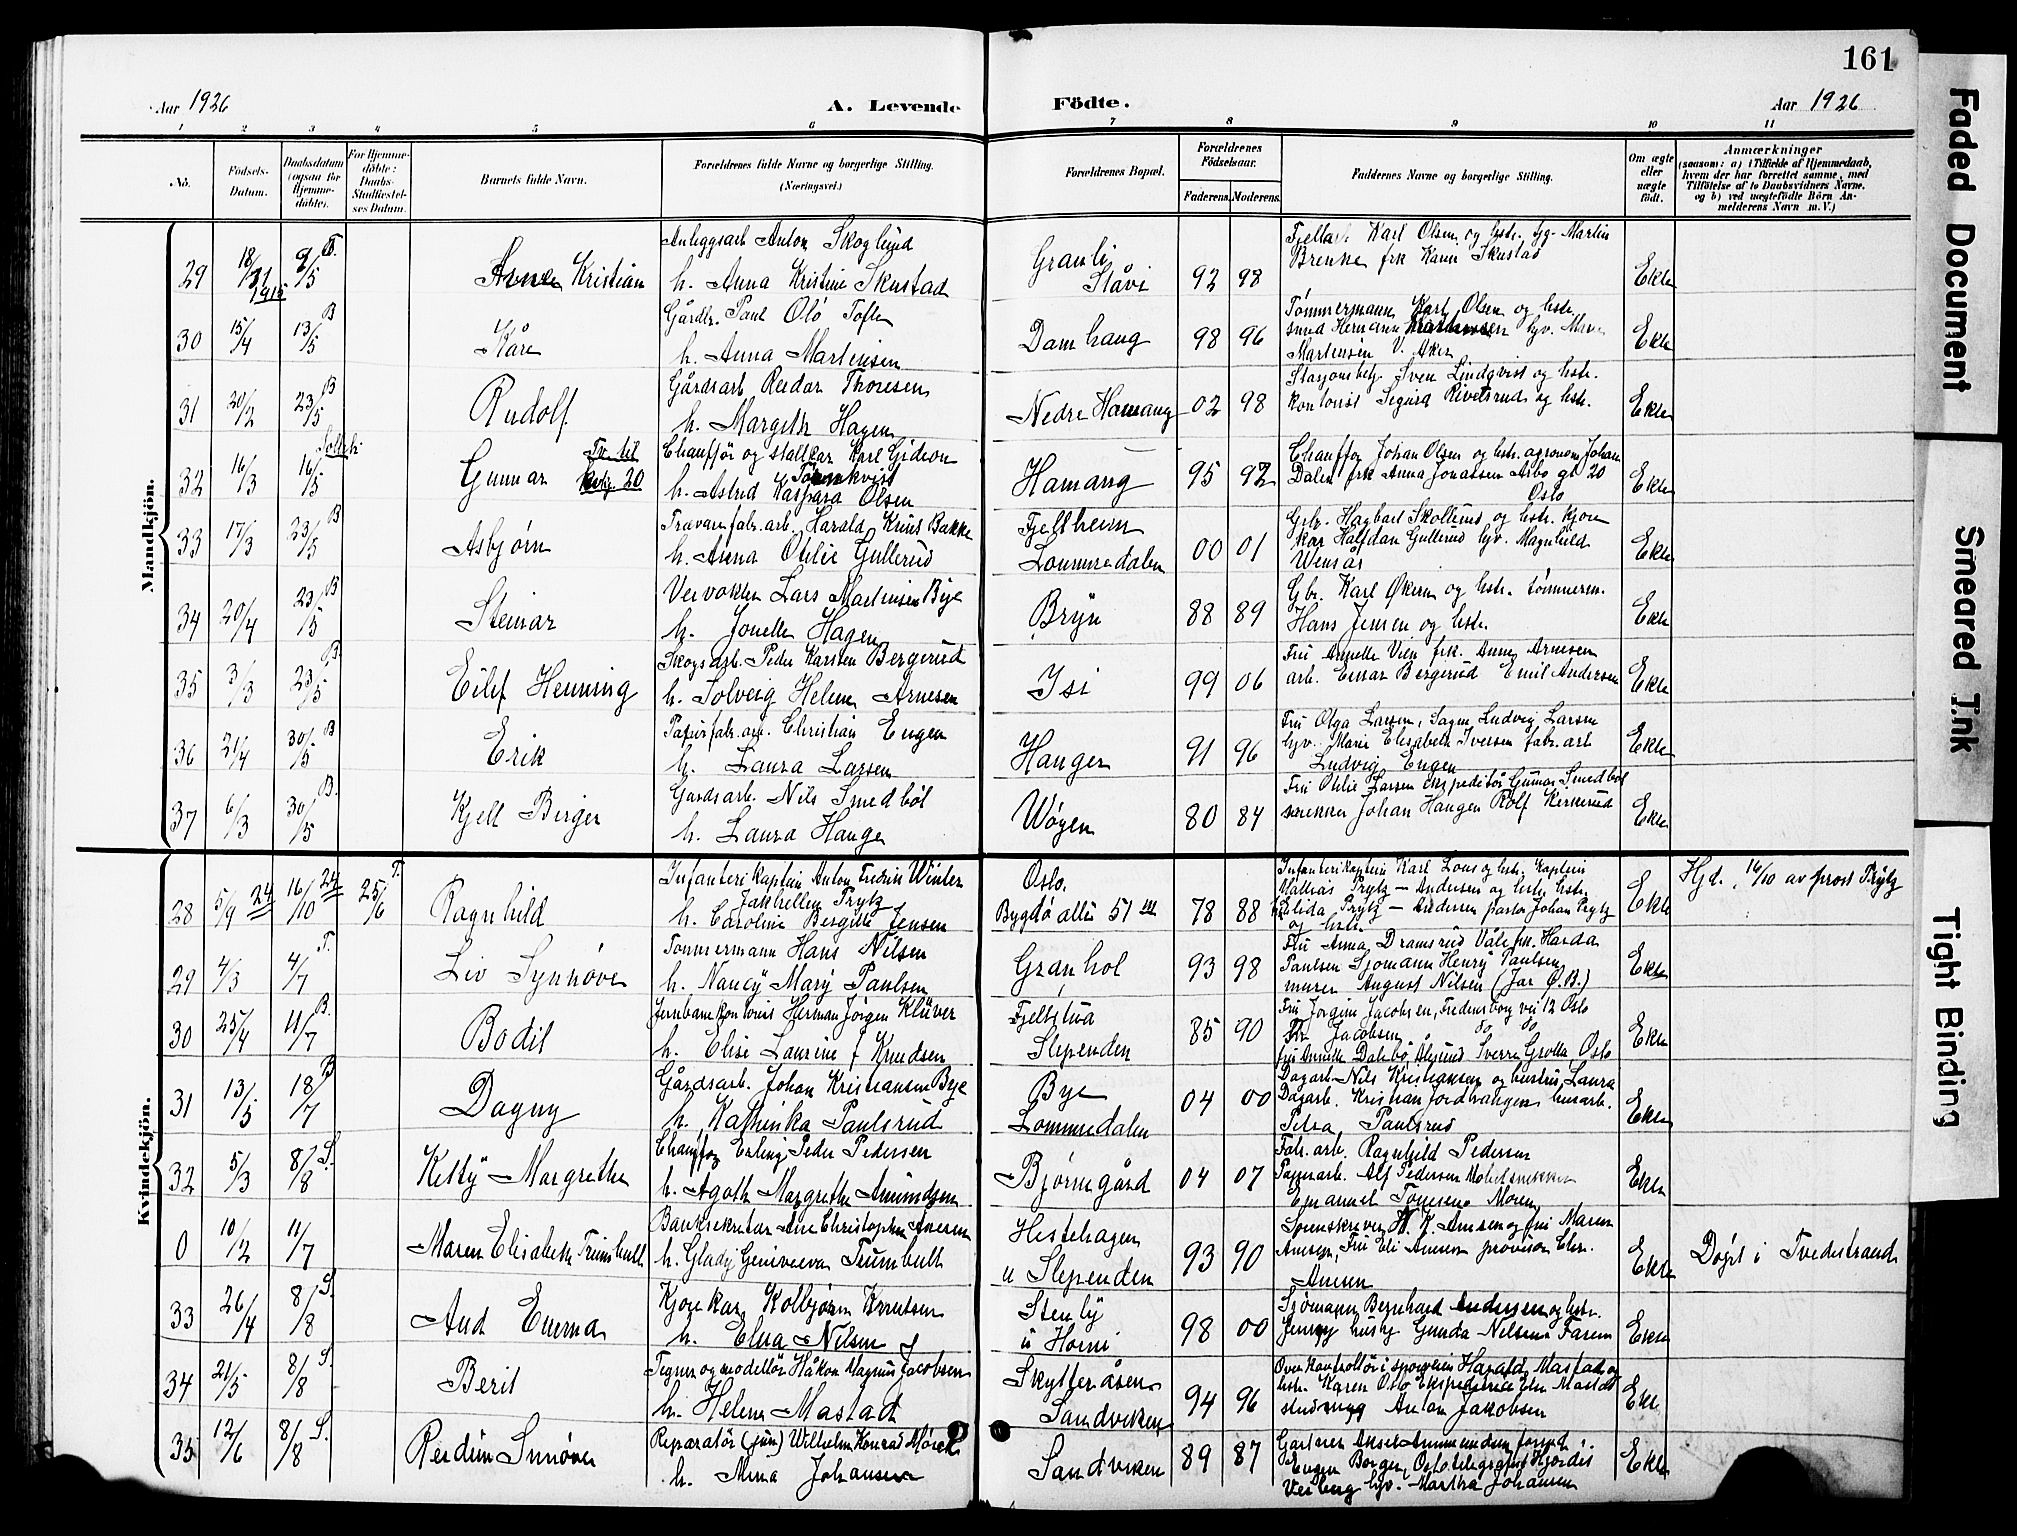 161
Aar 1926
A. Levende
Födte.
Aar 1926
1 2 3 4 5 6 7 8 9 10 11
No.
Födsels-
Datum.
Daabsdatum
(ogsaa for
Hjemme-
döbte).
For Hjemme-
döbte:
Daabs-
Stadfæstel-
ses Datum.
Barnets fulde Navn.
Forældrenes fulde Navne og borgerlige Stilling.
(Næringsvei.)
Forældrenes Bopæl.
Forældrenes
Födselsaar.
Faderens. Moderens.
Faddernes Navne og borgerlige Stilling.
Om ægte
eller
uægte
födt.
Anmærkninger
(saasom: a) i Tilfælde af Hjemmedaab,
hvem der har forrettet samme, med
Tilföielse af to Daabsvidners Navne.
og b) ved uægtefödte Börn An-
melderens Navn m. V.)
Mandkjön.
29 18/31 1915 9/5 T. Arne Kristian
Anleggsarb Anton Skoglund
h. Anna Kristine Skustad
Granli
Slåvi
92 98
Fjellarb Karl Olsen og hstr. Martin
Brenke frk Karen Skustad
Ekte
30 15/4 13/5 B Kåre
Gårdbr. Paul Olö Tofte
h. Anna Martinsen
Damhaug
98 96
Tømmermann Karl Olsen og hstr.
smed Hermann hjv.
Martensen V. Aker
Ekte
31 20/2 23/5 B Rudolf
Gårdsarb Reidar Thoresen
h. Margith Hagen
Nedre Hamang
02 98
Stasjonsbetj. Sven Lindqvist og hstr.
kontorist Sigurd Rivelsrud og hstr.
Ekte
32 16/3 16/5 Gunnar Tv. til 20
Chauffør og stallkar Karl Gideon
Törnkvist
h. Astrid Kaspara Olsen
Hamang
95 92
Chauffør Johan Olsen og hstr. agronom Johan
Dalen frk Anna Jonassen Arbo gt 20
Oslo
Ekte
33 17/3 23/5 B Asbjørn
Trævarefabr.arb. Harald Knut Bakke
h. Anna Othilie Gullerud
Fjellheim
Lommedalen
00 01
Grbr. Hagbart Skollerud og hstr. Kjøre
kar Halfdan Gullerud hjv. Magnhild
Wensås
Ekte
34 20/4 23/5 B Steinar
Veivokter Lars Martinsen Bye
h. Jonette Hagen
Bryn
88 89
Gbr. Karl Økern og hstr. tømmerm.
Hans Jensen og hstr.
Ekte
35 3/3 23/5 B Eilif Henning
Skogsarb. Peder Karsten Bergerud
h. Solveig Helene Arnesen
Isi
99 06
Fru Annette Vien frk. Anna Arnesen
arb. Einar Bergerud Emil Andersen
Ekte
36 21/4 30/5 B Erik
Papirfabr.arb. Christian Engen
h. Laura Larsen
Hauger
91 96
Fru Olga Larsen, Ludvig Larsen
hjv. Marie Elisabeth Iversen fabr.arb
Ludvig Engen
Ekte
37 6/3 30/5 B. Kjell Birger
Gårdsarb. Nils Smedbøl
h. Laura Hauge
Wøyen
80 84
Fru Othilie Larsen ekspeditør Gunnar Smedbøl
snekker Johan Haugen Rolf Kirkerud
Ekte
Kvindekjön.
28 5/9 24 16/10 24 25/6 T. Ragnhild
Infanterikaptein Anton Fredrik Winter
Jakhellen Prytz
h. Caroline Bergitte Jensen
Oslo.
Bygdö allé 51 III
78 88
Infanterikaptein Karl Lous og hstr. Kaptein
Mathias Prytz – Andersen og hstr. hstr.
Elida Prytz – Andersen pastor Johan Prytz
og hstr.
Ekte
Hjd. 16/10 av prost Prytz
29 4/3 4/7 T. Liv Synnøve
Tømmermann Hans Nilsen
h. Nancy Mary Paulsen
Granhol
93 98
Fru Anna Dramsrud Våle frk. Harda
Paulsen Sjømann Henry Paulsen
murer August Nilsen (Jar Ø.B.)
Ekte
30 25/4 11/7 B. Bodil
Jernbanekontorist Herman Jörgen Klüver
h. Elise Laurine f Knudsen
Fjellstua
Slependen
85 90
Fru Jørgine Jacobsen, Fredensborg vei 12 Oslo
Jacobsen do do
fru Annette Dalebö Ålesund Sverre Grotta Oslo
Ekte
31 13/5 18/7 B Dagny
Gårdsarb. Johan Kristiansen Bye
h. Kathinka Paulsrud
Bye
Lommedalen
04 00
Dagarb. Nils Kristiansen og hustru Laura
Dagarb. Kristian Jordhaugen husarb.
Petra Paulsrud
Ekte
32 5/3 8/8 S. Ketty Margrethe
Chauffør Erling Peder Pedersen
h. Agoth Margrethe Amundsen
Bjørnegård
04 07
Fabr.arb. Ragnhild Pedersen
Papirarb. Alf Pedersen Møbelsnekker
Emanuel Moren
Ekte
0 10/2 11/7 Maren Elisabeth Trumbull
Banksekretær Are Christophen Anesen
h. Glady Genivieva Trumbull
Hestehagen
u Slependen
93 90
Sorenskriver H. K. Amsen og fru Maren
Anesen, Fru Eli Anesen provisor Chr.
Anesen
Ekte
Døpt i Tvedestrand
33 26/4 8/8 S. Aud Emma
Kjørekar Kolbjørn Knutsen
h. Elna Nilsen
Stenby
u Horni
98 00
Sjømann Bernhard Andersen og hstr.
Jenny husbg Gunda Nilsen Farem
Ekte
34 21/5 8/8 S. Berit
Tegner og modellör Håkon Magnus Jacobsen
h. Helene Mastad
Skytteråsen
Sandviken
94 96
Overkontrollör i sporveien Harald Mastad og
hstr. Karen Oslo Ekspeditrice Else Mastad
Anton Jakobsen
Ekte
35 12/6 8/8 S. Reidun Sunøve
Reparatør (jun) Wilhelm Konrad Mørch
h. Anna Johansen
Sandviken
89 87
Gartner Aksel Ammundsen
Borgen, Oslo telegrafist Hjørdis
Verberg hjv. Martha Johansen
Ekte
Faded Document
Smeared Ink
Tight Binding